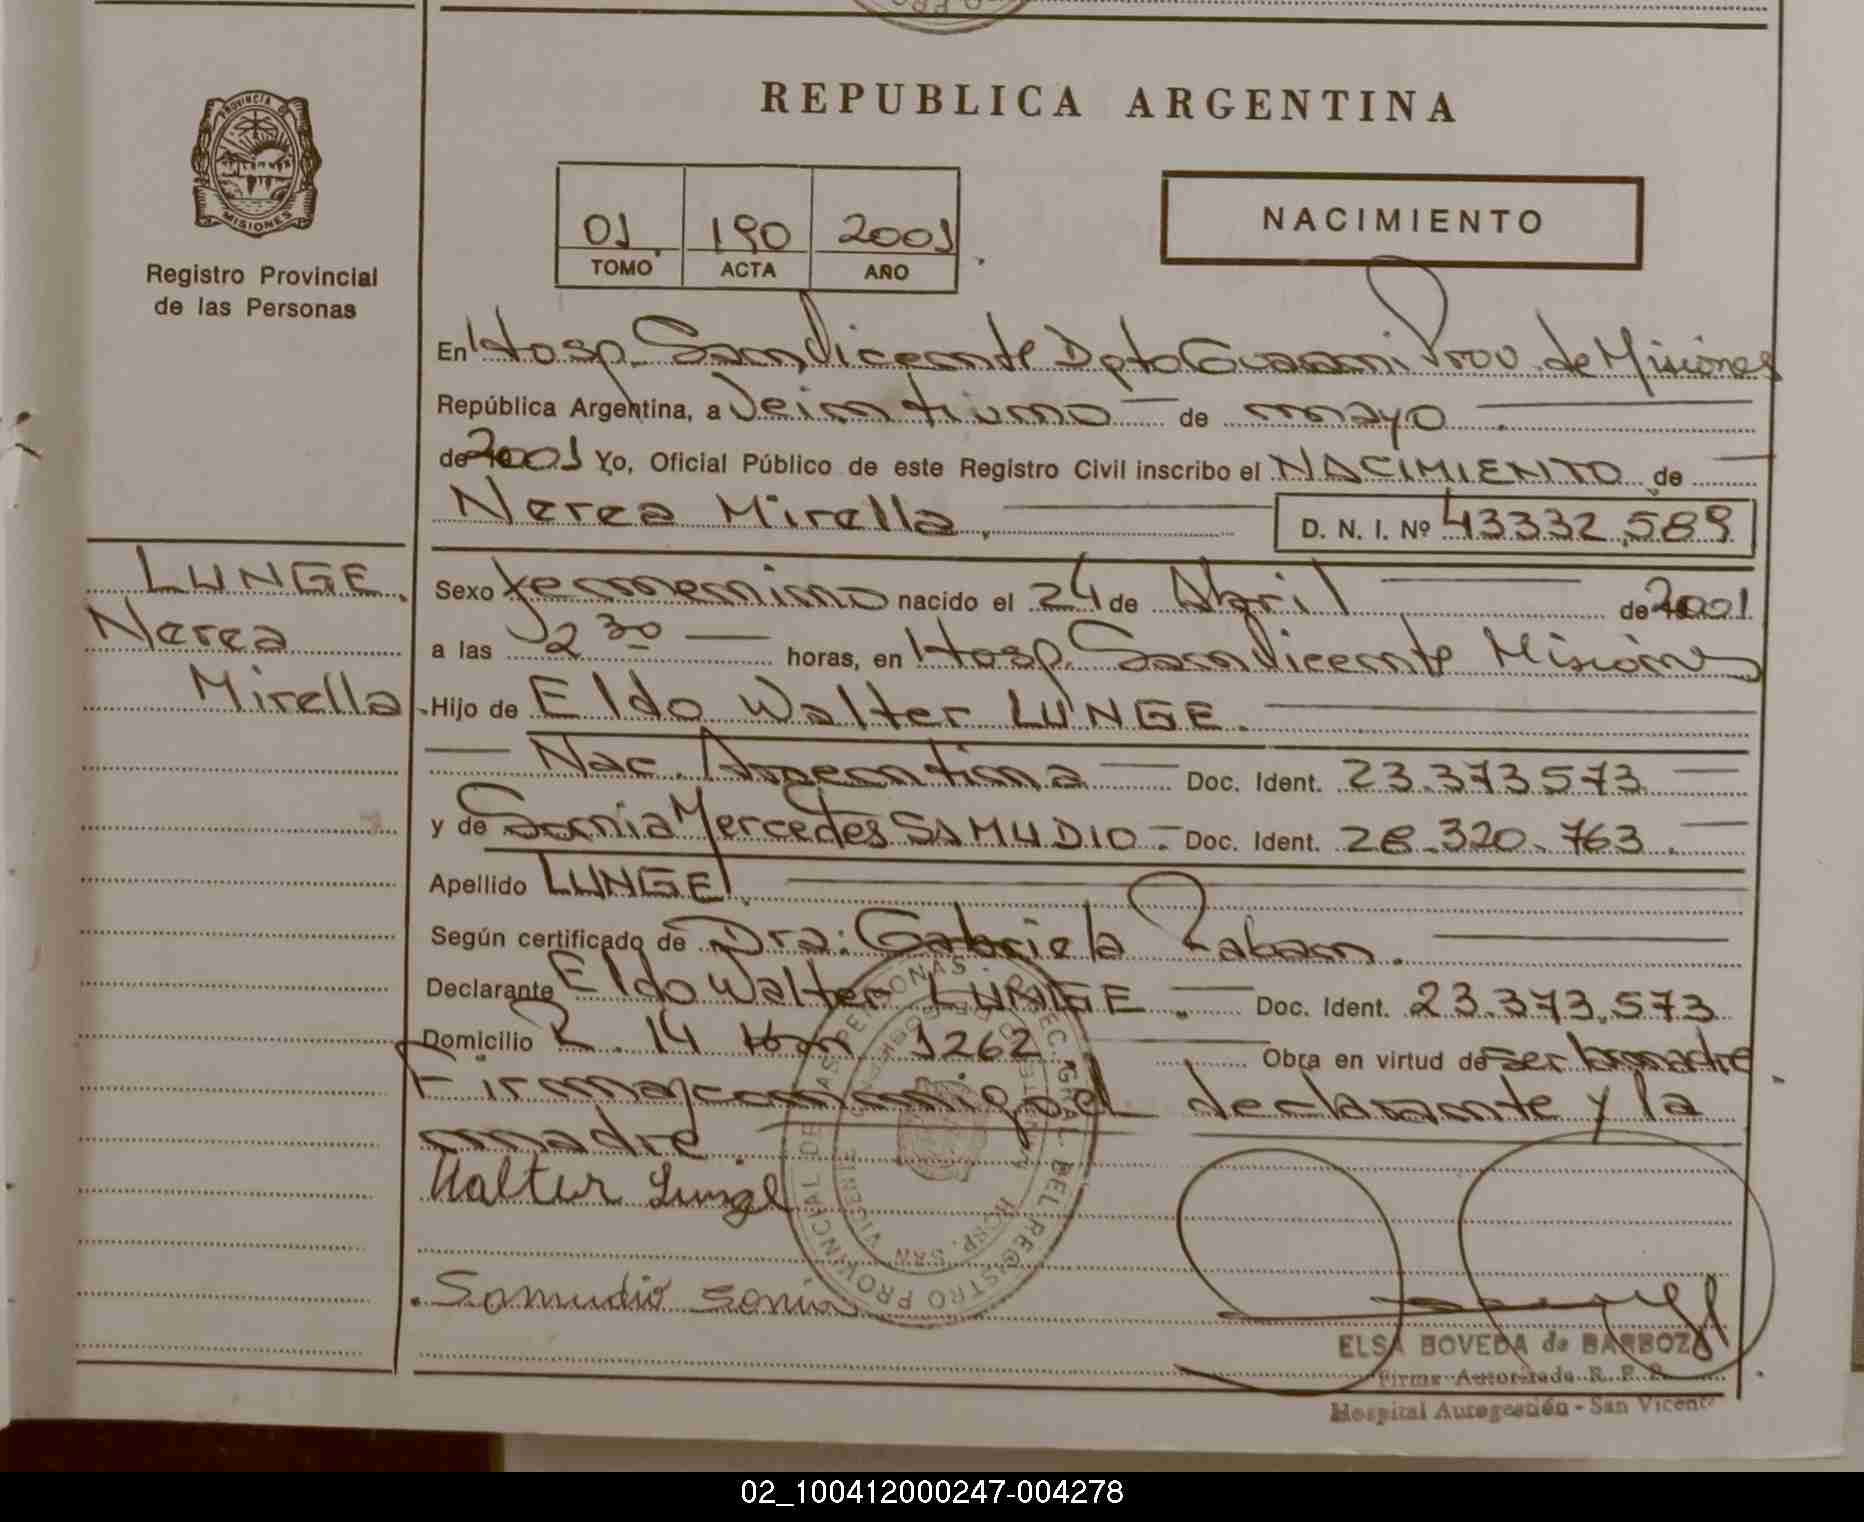 REPUBLICA ARGENTINA
PROVINCIA DE
MISIONES
Registro Provincial
de las Personas
01 190 2001
TOMO ACTA AÑO
NACIMIENTO
En Hosp. San Vicente Dpto Guarani Prov. de Misiones
República Argentina, a Veintiuno de mayo
de 2001 Yo, Oficial Público de este Registro Civil inscribo el NACIMIENTO de
Nerea Mirella. D. N. I. Nº 43332.589
LUNGE.
Nerea
Mirella
Sexo femenino nacido el 24 de Abril de 2001
a las 2 30 horas, en Hosp. San Vicente Misiones
Hijo de Eldo Walter LUNGE.
Nac. Argentina Doc. Ident. 23.373573
y de Sonia Mercedes SAMUDIO Doc. Ident. 28.320.763
Apellido LUNGE.
Según certificado de Dra: Gabriela Laban.
Declarante Eldo Walter LUNGE Doc. Ident. 23.373.573
Domicilio R. 14 Km 1262 Obra en virtud de ser la madre
Firman conmigo el declarante y la
madre.
Walter Lunge
Samudio Sonia
DIRECC. GRAL. DEL REGISTRO PROVINCIAL DE LAS PERSONAS
HOSP. SAN VICENTE
ELSA BOVEDA de BARBOZA
Firma Autorizada R. P. P.
Hospital Autogestión - San Vicente
02_100412000247-004278